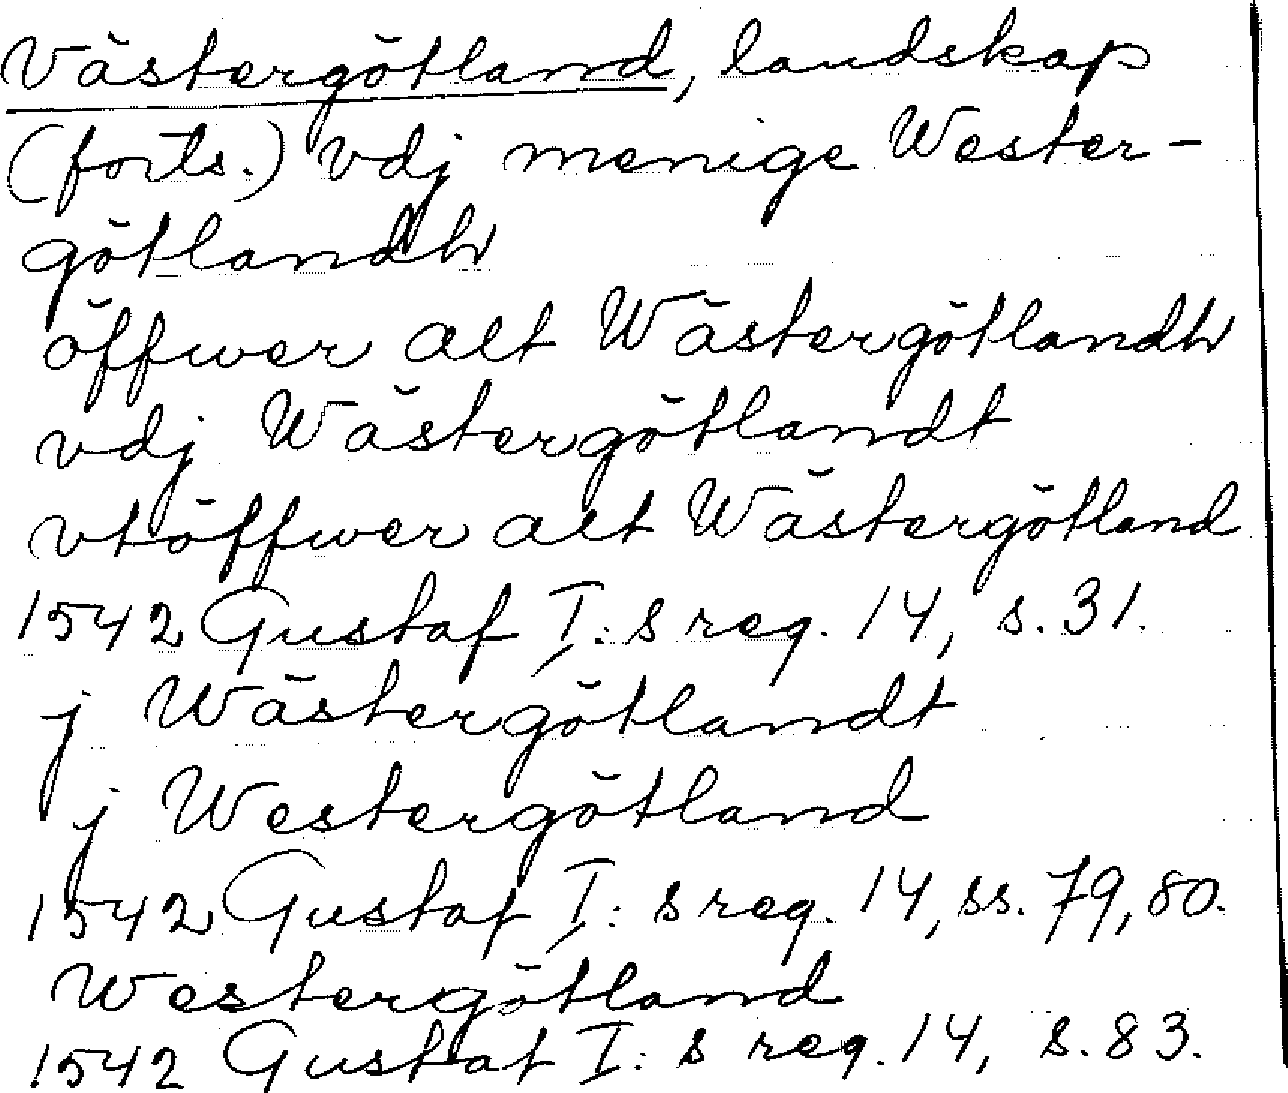 Västergötland, landskap
(forts.) vdj menige Wester-
götlandh
öffwer alt Wästergötlandh
vdj Wästergötlandt
vtöffwer alt Wästergötland
1542 Gustaf I:s reg. 14, s. 31.
j Wästergötlandt
j Westergötland
1542 Gustaf I:s reg. 14, ss. 79, 80.
Westergötland
1542 Gustaf I:s reg. 14, s. 83.